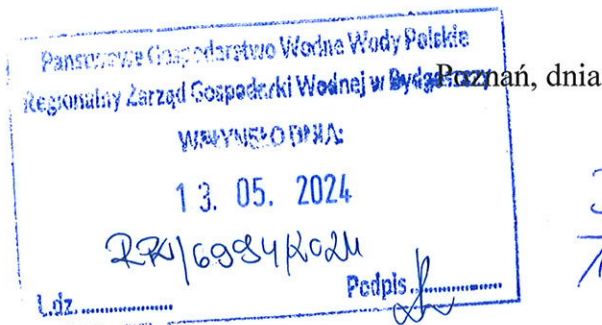 Państwowe Gospodarstwo Wodne Wody Polskie
Regionalny Zarząd Gospodarki Wodnej w Bydgoszczy
Poznań, dnia
WPŁYNĘŁO DNIA:
13. 05. 2024
RPW/6994/2024
L.dz. ............... Podpis ...............